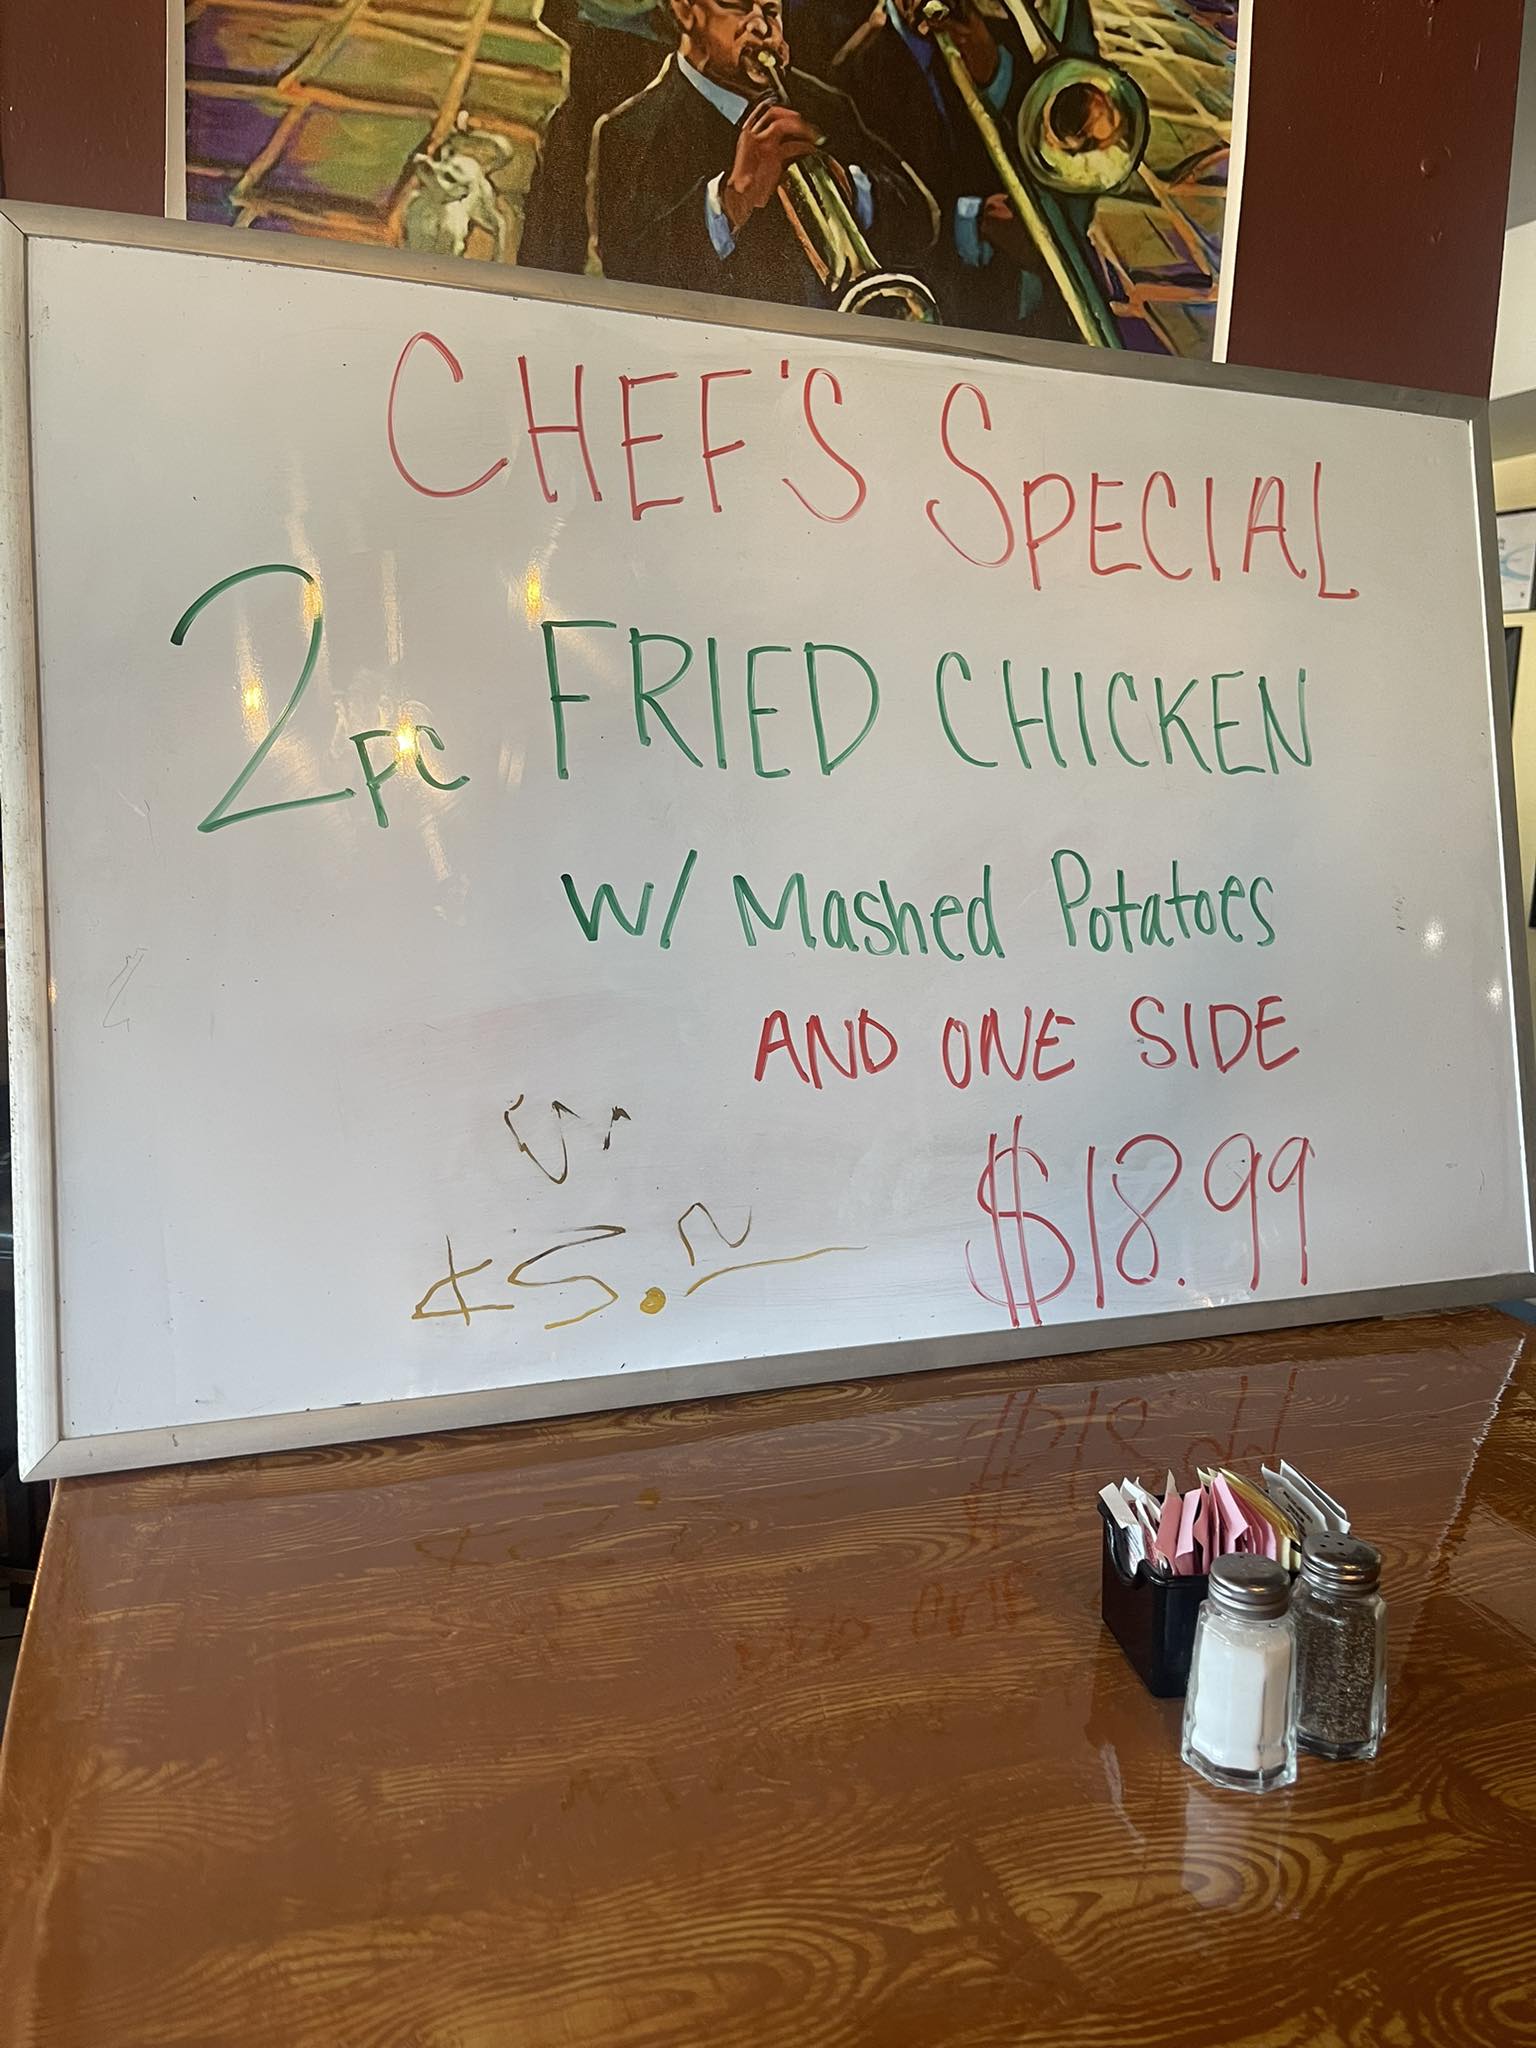 CHEF'S SPECIAL
2PC FRIED CHICKEN
W/ Mashed Potatoes
AND ONE SIDE
$18.99